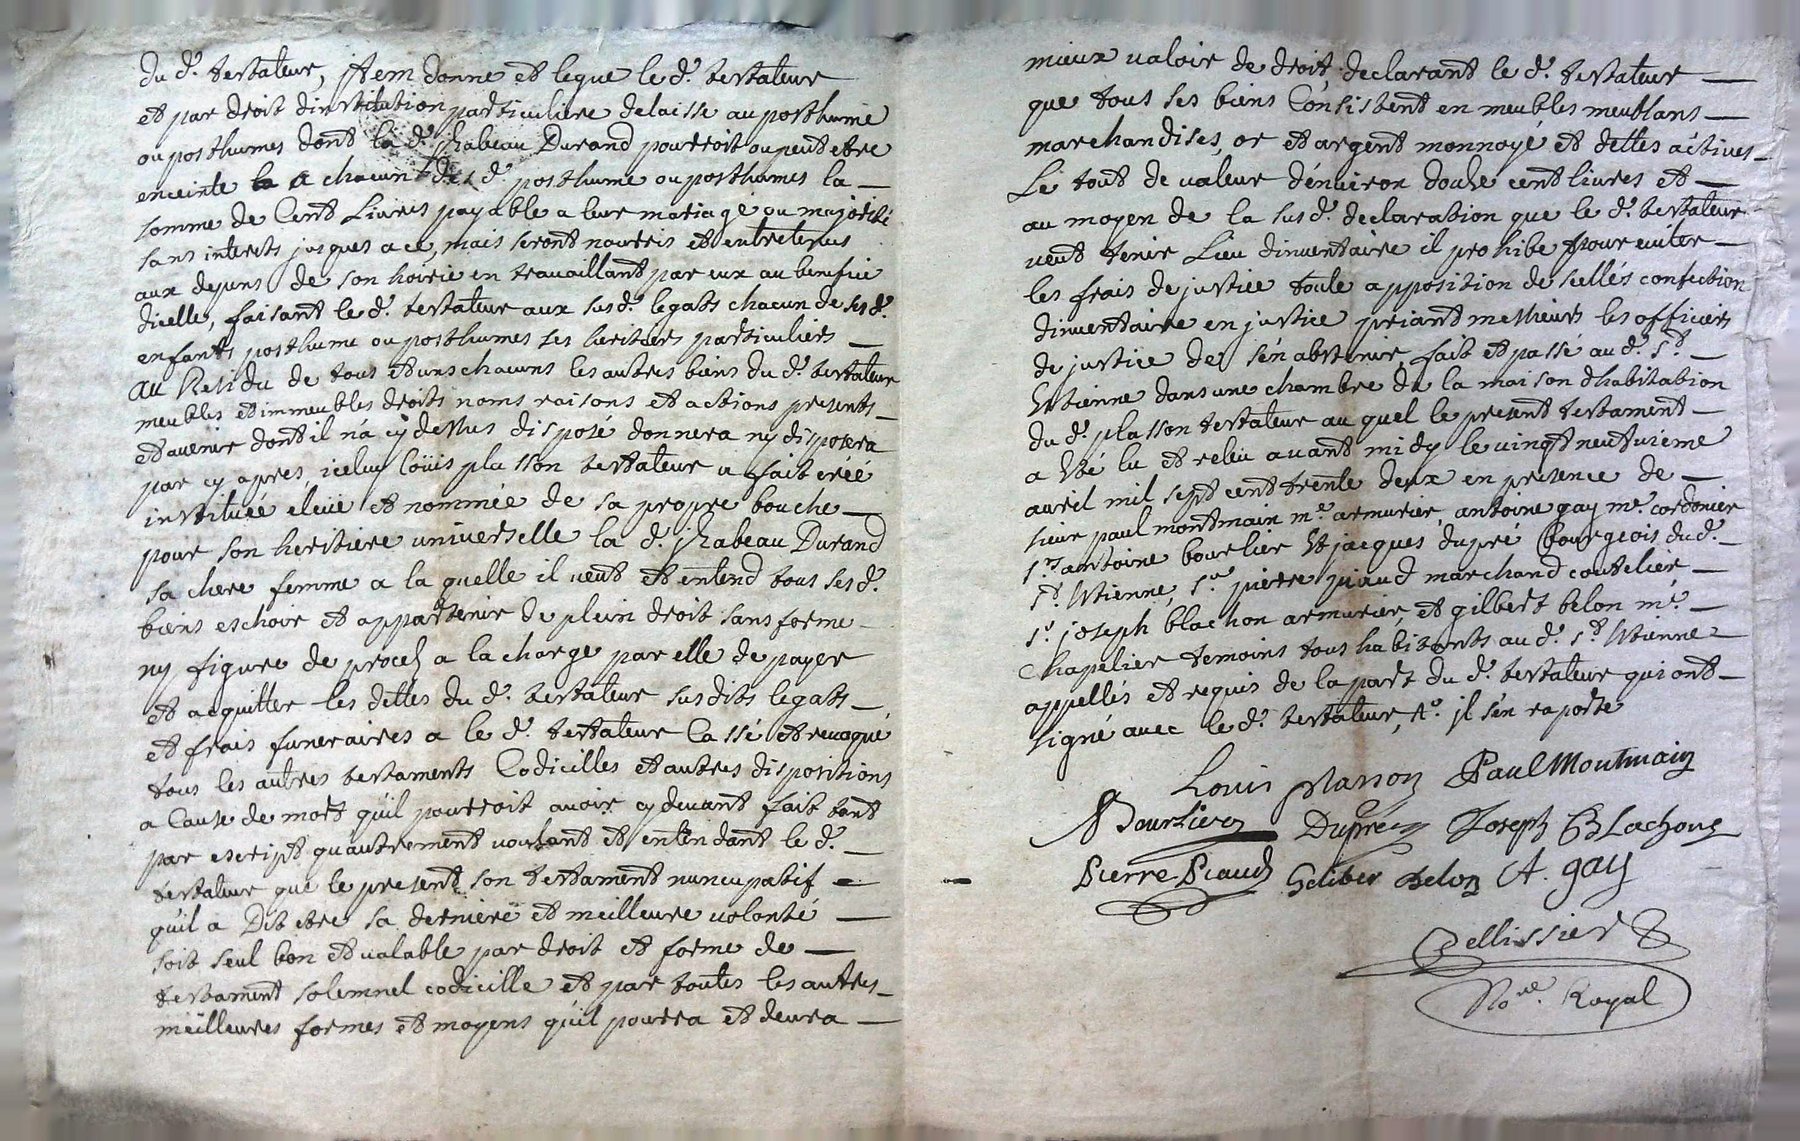 du d.^t testateur, Item donne et legue le d.^t testateur
et par droit dinstitution particuliere delaisse au posthume
ou posthumes dont la d.^e Izabeau Durand pourroit ou peut etre
enceinte a chacun des d.^t posthume ou posthumes la
somme de Cent Livres payable a leur mariage ou majorité
sans interets jusques a ce, mais seront nourris et entretenus
aux depens de son hoirie en travaillant par eux au benefice
dicelle, faisant le d.^t testateur aux susd.^t legats chacun de ses d.^t
enfants posthume ou posthumes ses heritiers particuliers
au Residu de tous et uns chacuns les autres biens du d.^t testateur
meubles et immeubles droits noms raisons et actions presents
et avenir dont il n'a cy dessus disposé donnera ny disposera
par cy apres, iceluy Loüis plasson testateur a fait créé
instituée eleüe et nommée de sa propre bouche
pour son heritiere universelle la d.^e Izabeau Durand
sa chere femme a la quelle il veut et entend tous ses d.^t
biens eschoir et appartenir de plein droit sans forme
ny figure de procès a la charge par elle de payer
et acquitter les dettes du d.^t testateur susdits legats
et frais funeraires a le d.^t testateur Cassé et revoqué
tous les autres testaments Codicilles et autres dispositions
a Cause de mort qu'il pourroit avoir cy devant fait tant
par escript qu'autrement voulant et entendant le d.^t
testateur que le present son testament nuncupatif
qu'il a Dit etre sa derniere et meilleure volonté
soit seul bon et valable par droit et forme de
testament solemnel codicille et par toutes les autres
meilleures formes et moyens qu'il pourra et devra
mieux valoir de droit declarant le d.^t testateur
que tous ses biens Consistent en meubles meublans
marchandises, or et argent monnoye et dettes actives
Le tout de valeur d'environ douze cent livres et
au moyen de la susd.^e declaration que le d.^t testateur
veut tenir Lieu dinventaire il prohibe pour eviter
les frais de justice toute apposition de scellés confection
dinventaire en justice priant messieurs les officiers
de justice de s'en abstenir, fait et passé au d.^t S.^t
Etienne dans une chambre de la maison dhabitation
du d.^t plasson testateur au quel le present testament
a eté lu et releu avant midy le vingt neuvieme
avril mil sept cent trente deux en presence de
sieur paul montmain m.^e armurier, antoine gay m.^e cordonier
s.^rs antoine bourlier et jacques dupré Bourgeois du d.^t
S.^t Etienne, s.^r pierre piaud marchand coutelier
s.^r joseph blachon armurier, et gilbert belon m.^e
Chapelier temoins tous habitants au d.^t S.^t Etienne
appellés et requis de la part du d.^t testateur qui ont
signé avec le d.^t testateur, il s'en raporte
Louis plasson Paul Montmain
Bourlier Dupré Joseph Blachons
Pierre Piaud Geliber belon A. gay
Pellissier
No^re. Royal